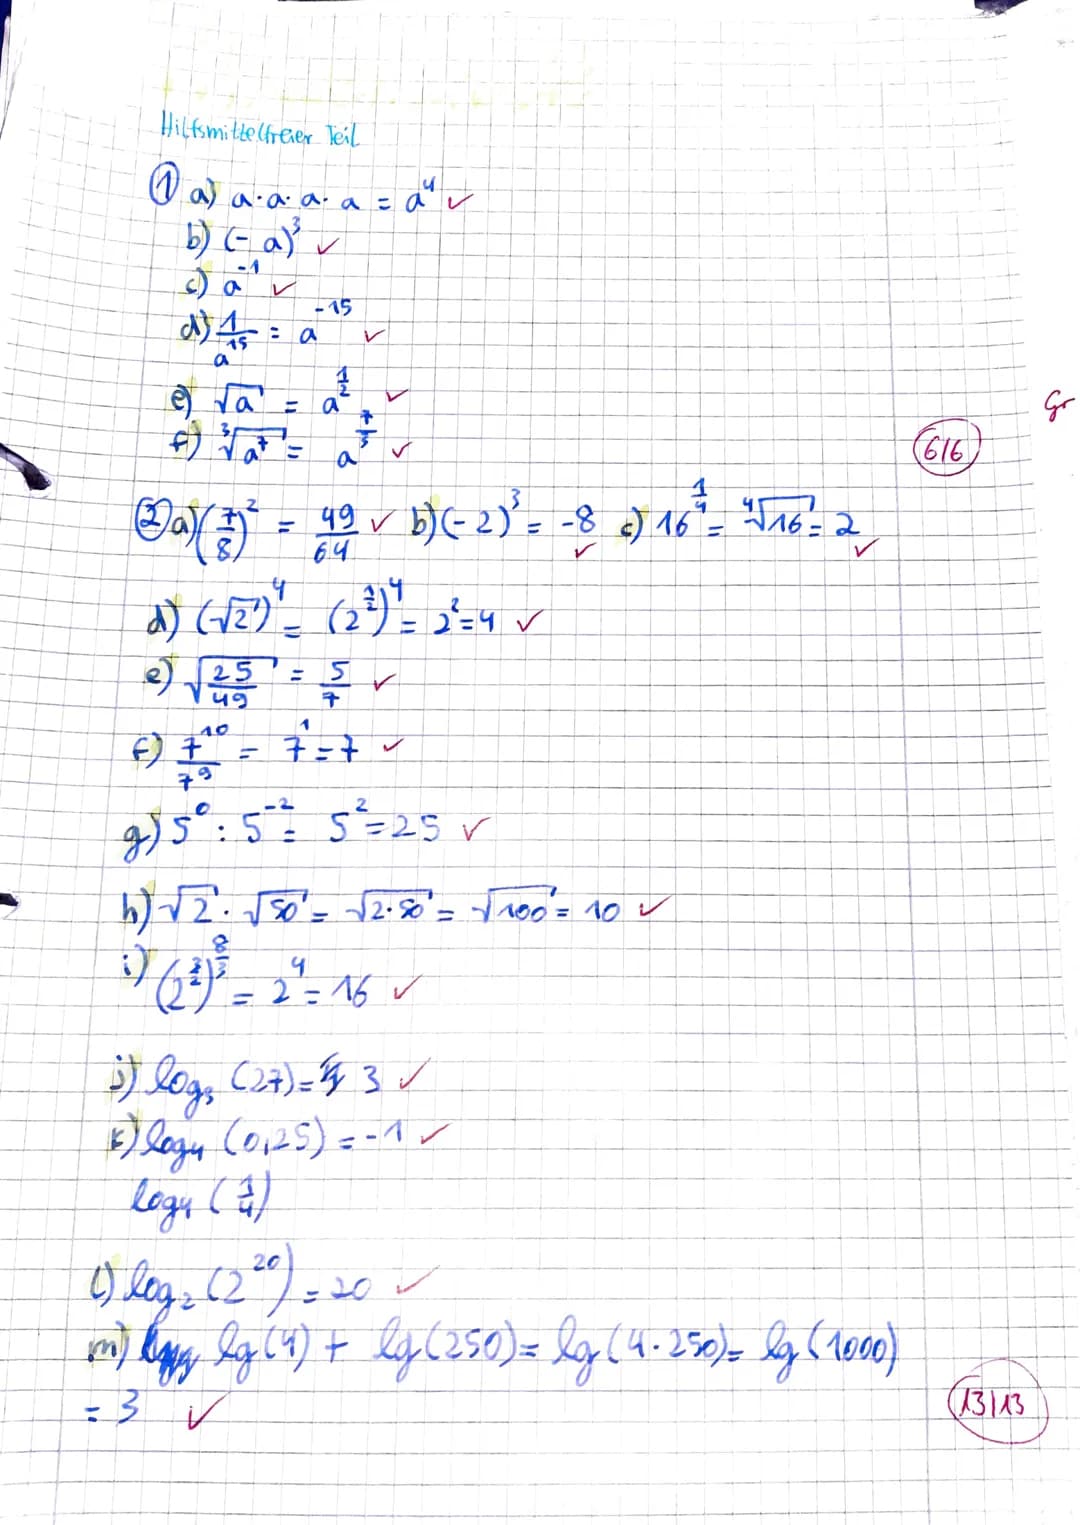 Hilfsmittelfreier Teil
① a) a·a·a·a = a⁴ ✓
b) (-a)³ ✓
c) a⁻¹ ✓
d) 1/a¹⁵ = a⁻¹⁵ ✓
e) √a = a^(1/2) ✓
f) ³√a⁷ = a^(7/3) ✓
Gr
6/6
② a) (7/8)² = 49/64 ✓ b) (-2)³ = -8 ✓ c) 16^(1/4) = ⁴√16 = 2 ✓
d) (√2)⁴ = (2^(1/2))⁴ = 2² = 4 ✓
e) √(25/49) = 5/7 ✓
f) 7¹⁰/7⁹ = 7¹ = 7 ✓
g) 5⁰ : 5⁻² = 5² = 25 ✓
h) √2 · √50 = √2·50 = √100 = 10 ✓
i) (2^(3/2))^(8/3) = 2⁴ = 16 ✓
j) log₃ (27) = 3 ✓
k) log₄ (0,25) = -1 ✓
log₄ (1/4)
l) log₂ (2²⁰) = 20 ✓
m) lg(4) + lg(250) = lg(4·250) = lg(1000)
= 3 ✓
13/13